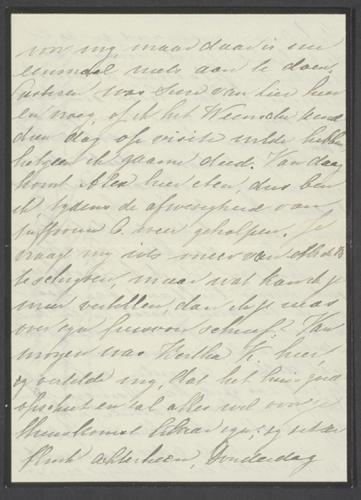 voor mij, maar daar is nu
eenmaal niets aan te doen.
Gisteren was van hier
en vroeg, of ik het kind
dien dag op visite wilde hebben
hetgeen ik gaarne deed. Van daag
komt Alex hier eten, dus ben
ik tijdens de afwezigheid van
juffrouw C. weer geholpen. Je
vraagt mij iets meer van
te schrijven, maar wat kan ik je
meer vertellen, dan ik je reeds
over zijn schreef? Van
morgen was Bertha K. hier,
zij vertelde mij, dat het huis goed
opschiet en dat alles wel voor je
thuiskomst klaar zijn; zij zit er
flink achterheen, Donderdag